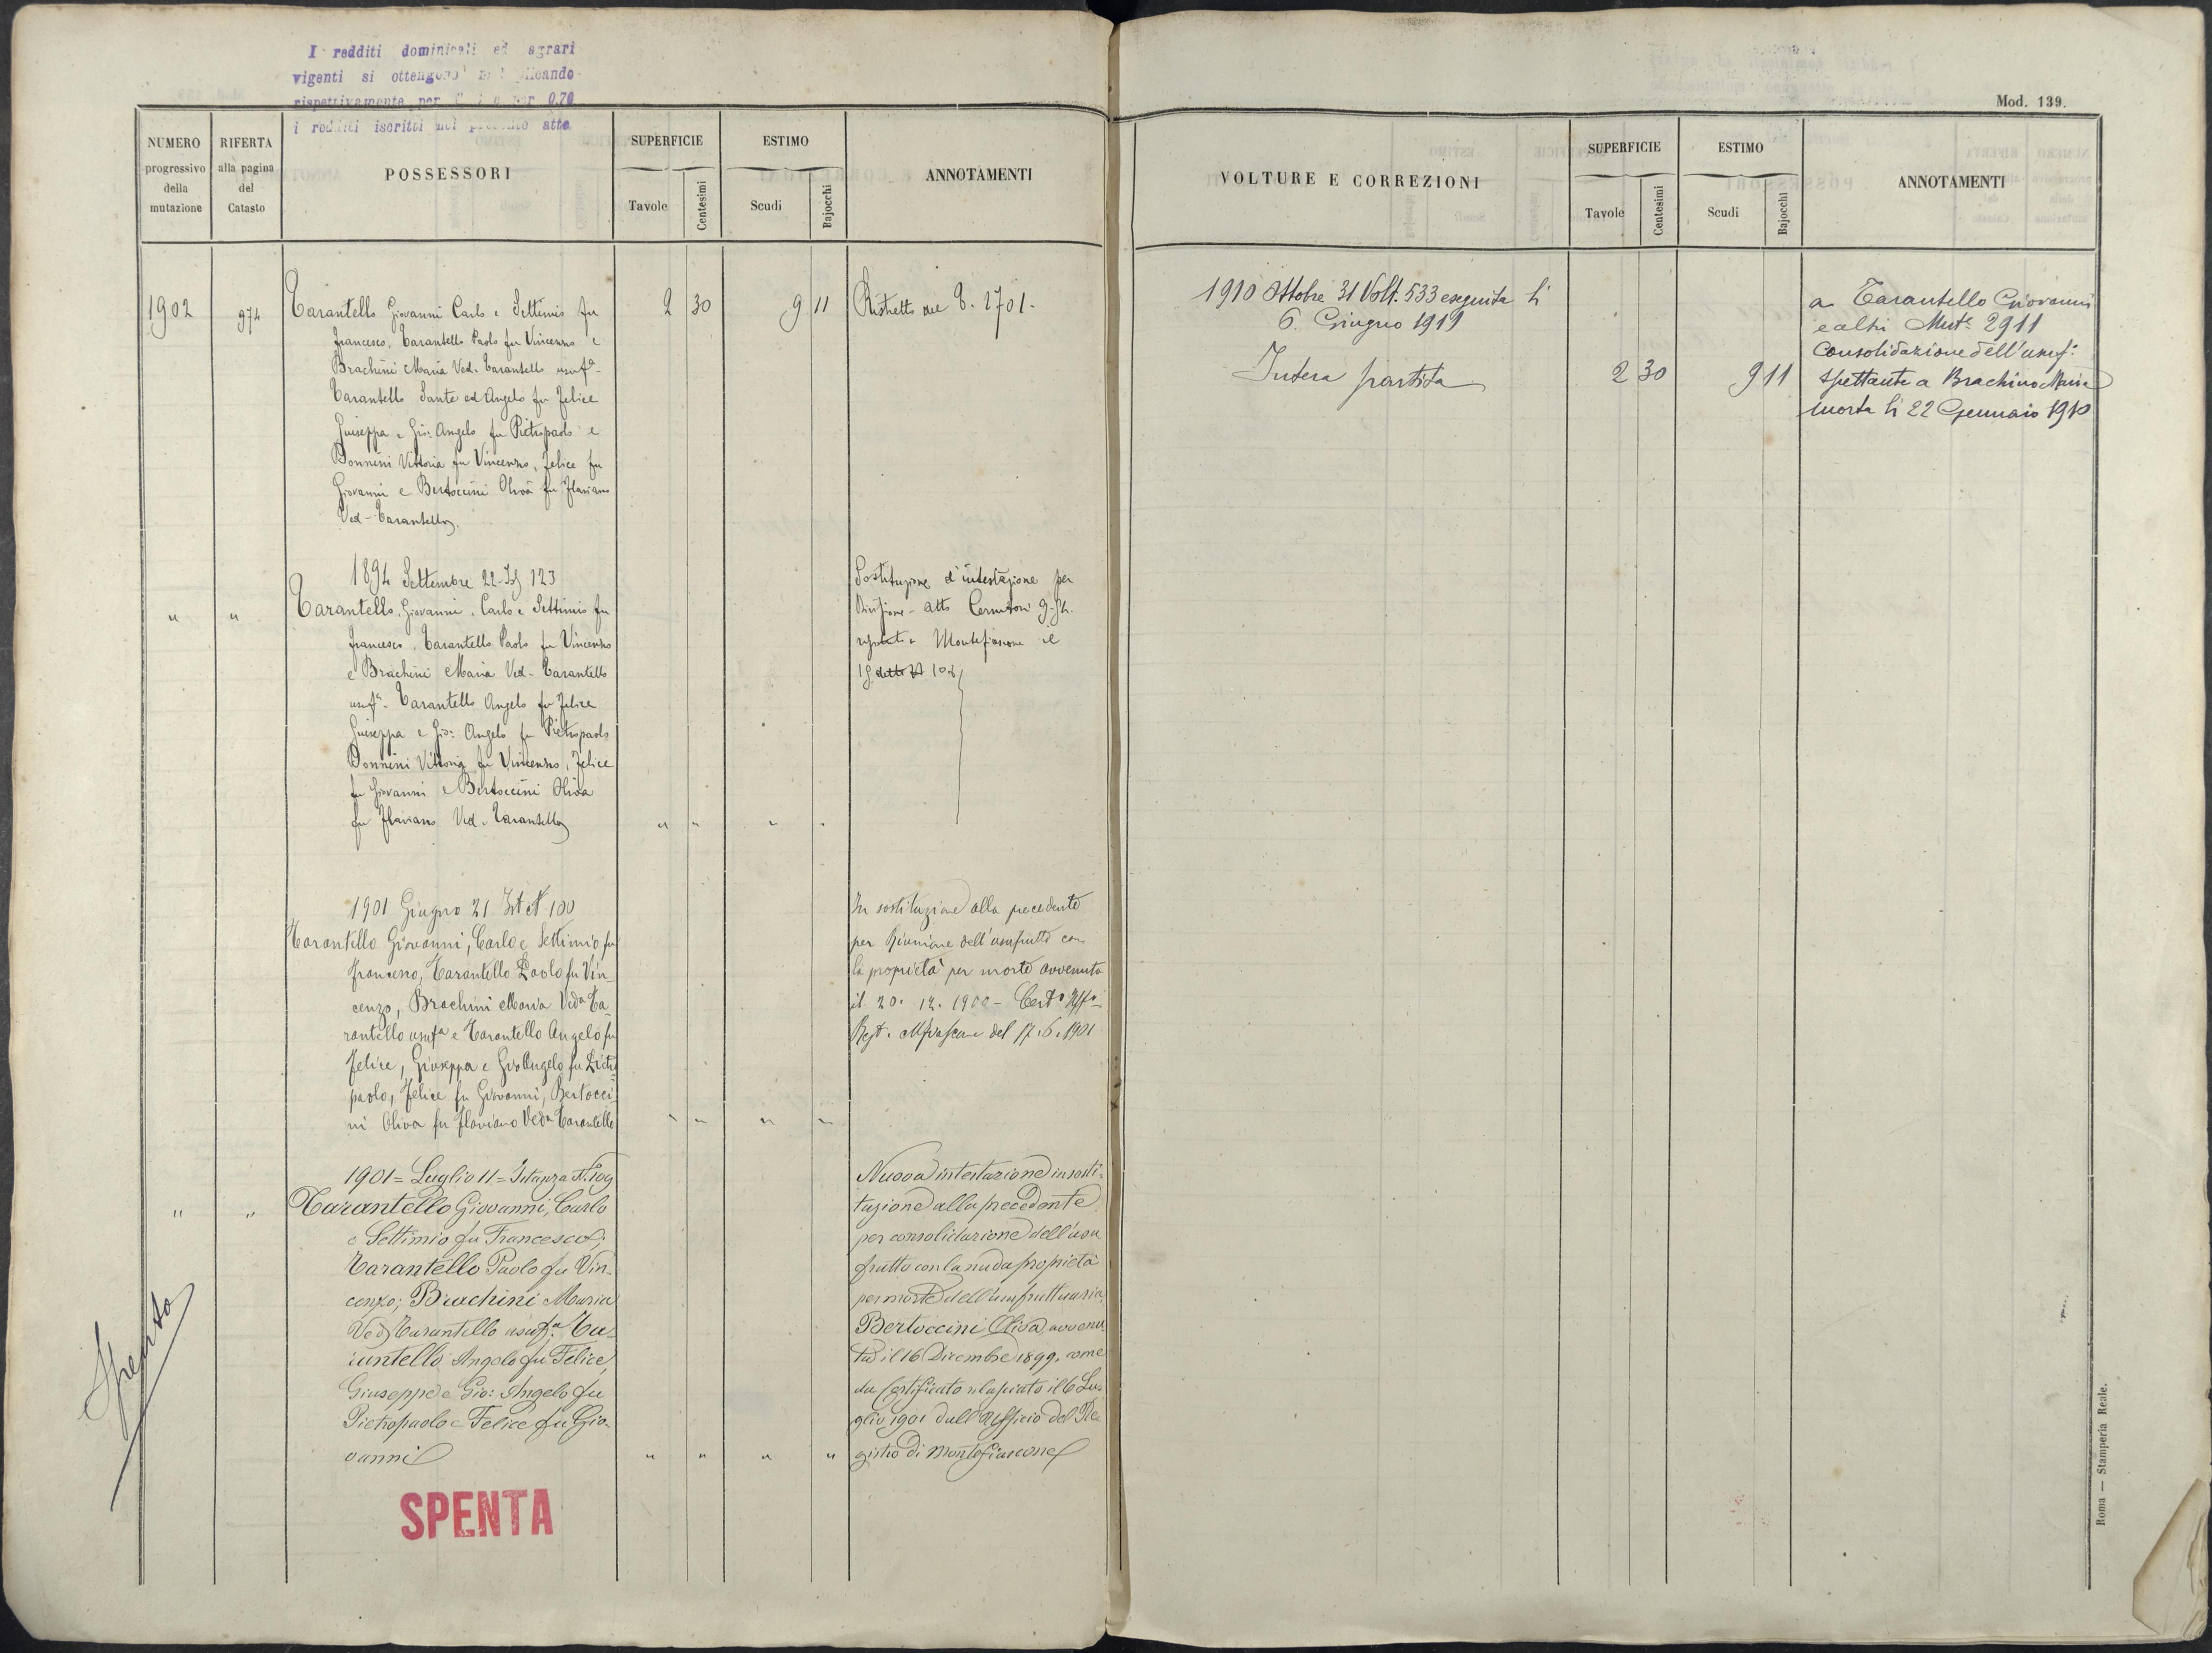 I redditi dominicali ed agrari
vigenti si ottengono
rispettivamente per 0.70
i redditi iscritti nel presente atto
Mod. 139.
NUMERO progressivo della mutazione
RIFERTA alla pagina del Catasto
POSSESSORI
SUPERFICIE
Tavole
Centesimi
ESTIMO
Scudi
Bajocchi
ANNOTAMENTI
1902 974
Tarantello Giovanni Carlo e Settimio fu
Francesco, Tarantello Paolo fu Vincenzo e
Brachini Maria Ved. Tarantello usufª
Tarantello Sante ed Angelo fu Felice
Giuseppa e Gio: Angelo fu Pietropaolo e
Donnini Vittoria fu Vincenzo, Felice fu
Giovanni e Bertoccini Oliva fu Flaviano
Ved - Tarantello.
2 30 9 11
Ristretto del 1701.
1894 Settembre 22 - 123
" "
Tarantello, Giovanni, Carlo e Settimio fu
Francesco, Tarantello Paolo fu Vincenzo
e Brachini Maria Ved - Tarantello
usufª - Tarantello Angelo fu Felice
Giuseppa e Gio: Angelo fu Pietropaolo
Donnini Vittoria fu Vincenzo, Felice
fu Giovanni e Bertoccini Oliva
fu Flaviano Ved. Tarantello
" " " "
Sostituzione d'intestazione per
Divisione - atto
Montefiascone il
19 detto
1901 Giugno 21 Ist N 100
Tarantello Giovanni, Carlo e Settimio fu
Francesco, Tarantello Paolo fu Vin-
cenzo, Brachini Maria Vedª Ta-
rantello usufª e Tarantello Angelo fu
Felice, Giuseppa e Gio Angelo fu Pietro
paolo, Felice fu Giovanni, Bertocci-
ni Oliva fu Flaviano Vedª Tarantello
" " " "
In sostituzione alla precedente
per Riunione dell'usufrutto con
la proprietà per morte avvenuta
il 20. 12. 1900 - Certº Uffº
Regt. Mfiascone del 17.6.1901
1901 = Luglio 11 = Istanza N. 109
" "
Tarantello Giovanni, Carlo
e Settimio fu Francesco;
Tarantello Paolo fu Vin-
cenzo; Brachini Maria
Ved Tarantello usufª Ta-
rantello Angelo fu Felice,
Giuseppe e Gio: Angelo fu
Pietropaolo e Felice fu Gio-
vanni
" " " "
Nuova intestazione in sosti-
tuzione alla precedente
per consolidazione dell'usu
frutto con la nuda proprietà
per morte dell'usufruttuaria
Bertoccini Oliva, avvenu-
ta il 16 Dicembre 1899, come
da Certificato rilasciato il 6 Lu-
glio 1901 dall'Ufficio del Re-
gistro di Montefiascone
Spenta
SPENTA
VOLTURE E CORREZIONI
SUPERFICIE
Tavole
Centesimi
ESTIMO
Scudi
Bajocchi
ANNOTAMENTI
1910 Ottobre 31 Volt. 533 eseguita li
6. Giugno 1911
Intera partita
2 30 9 11
a Tarantello Giovanni
e altri Mutª 2911
Consolidazione dell'usuf:
spettante a Brachino Maria
morta li 22 Gennaio 1910
Roma — Stamperia Reale.